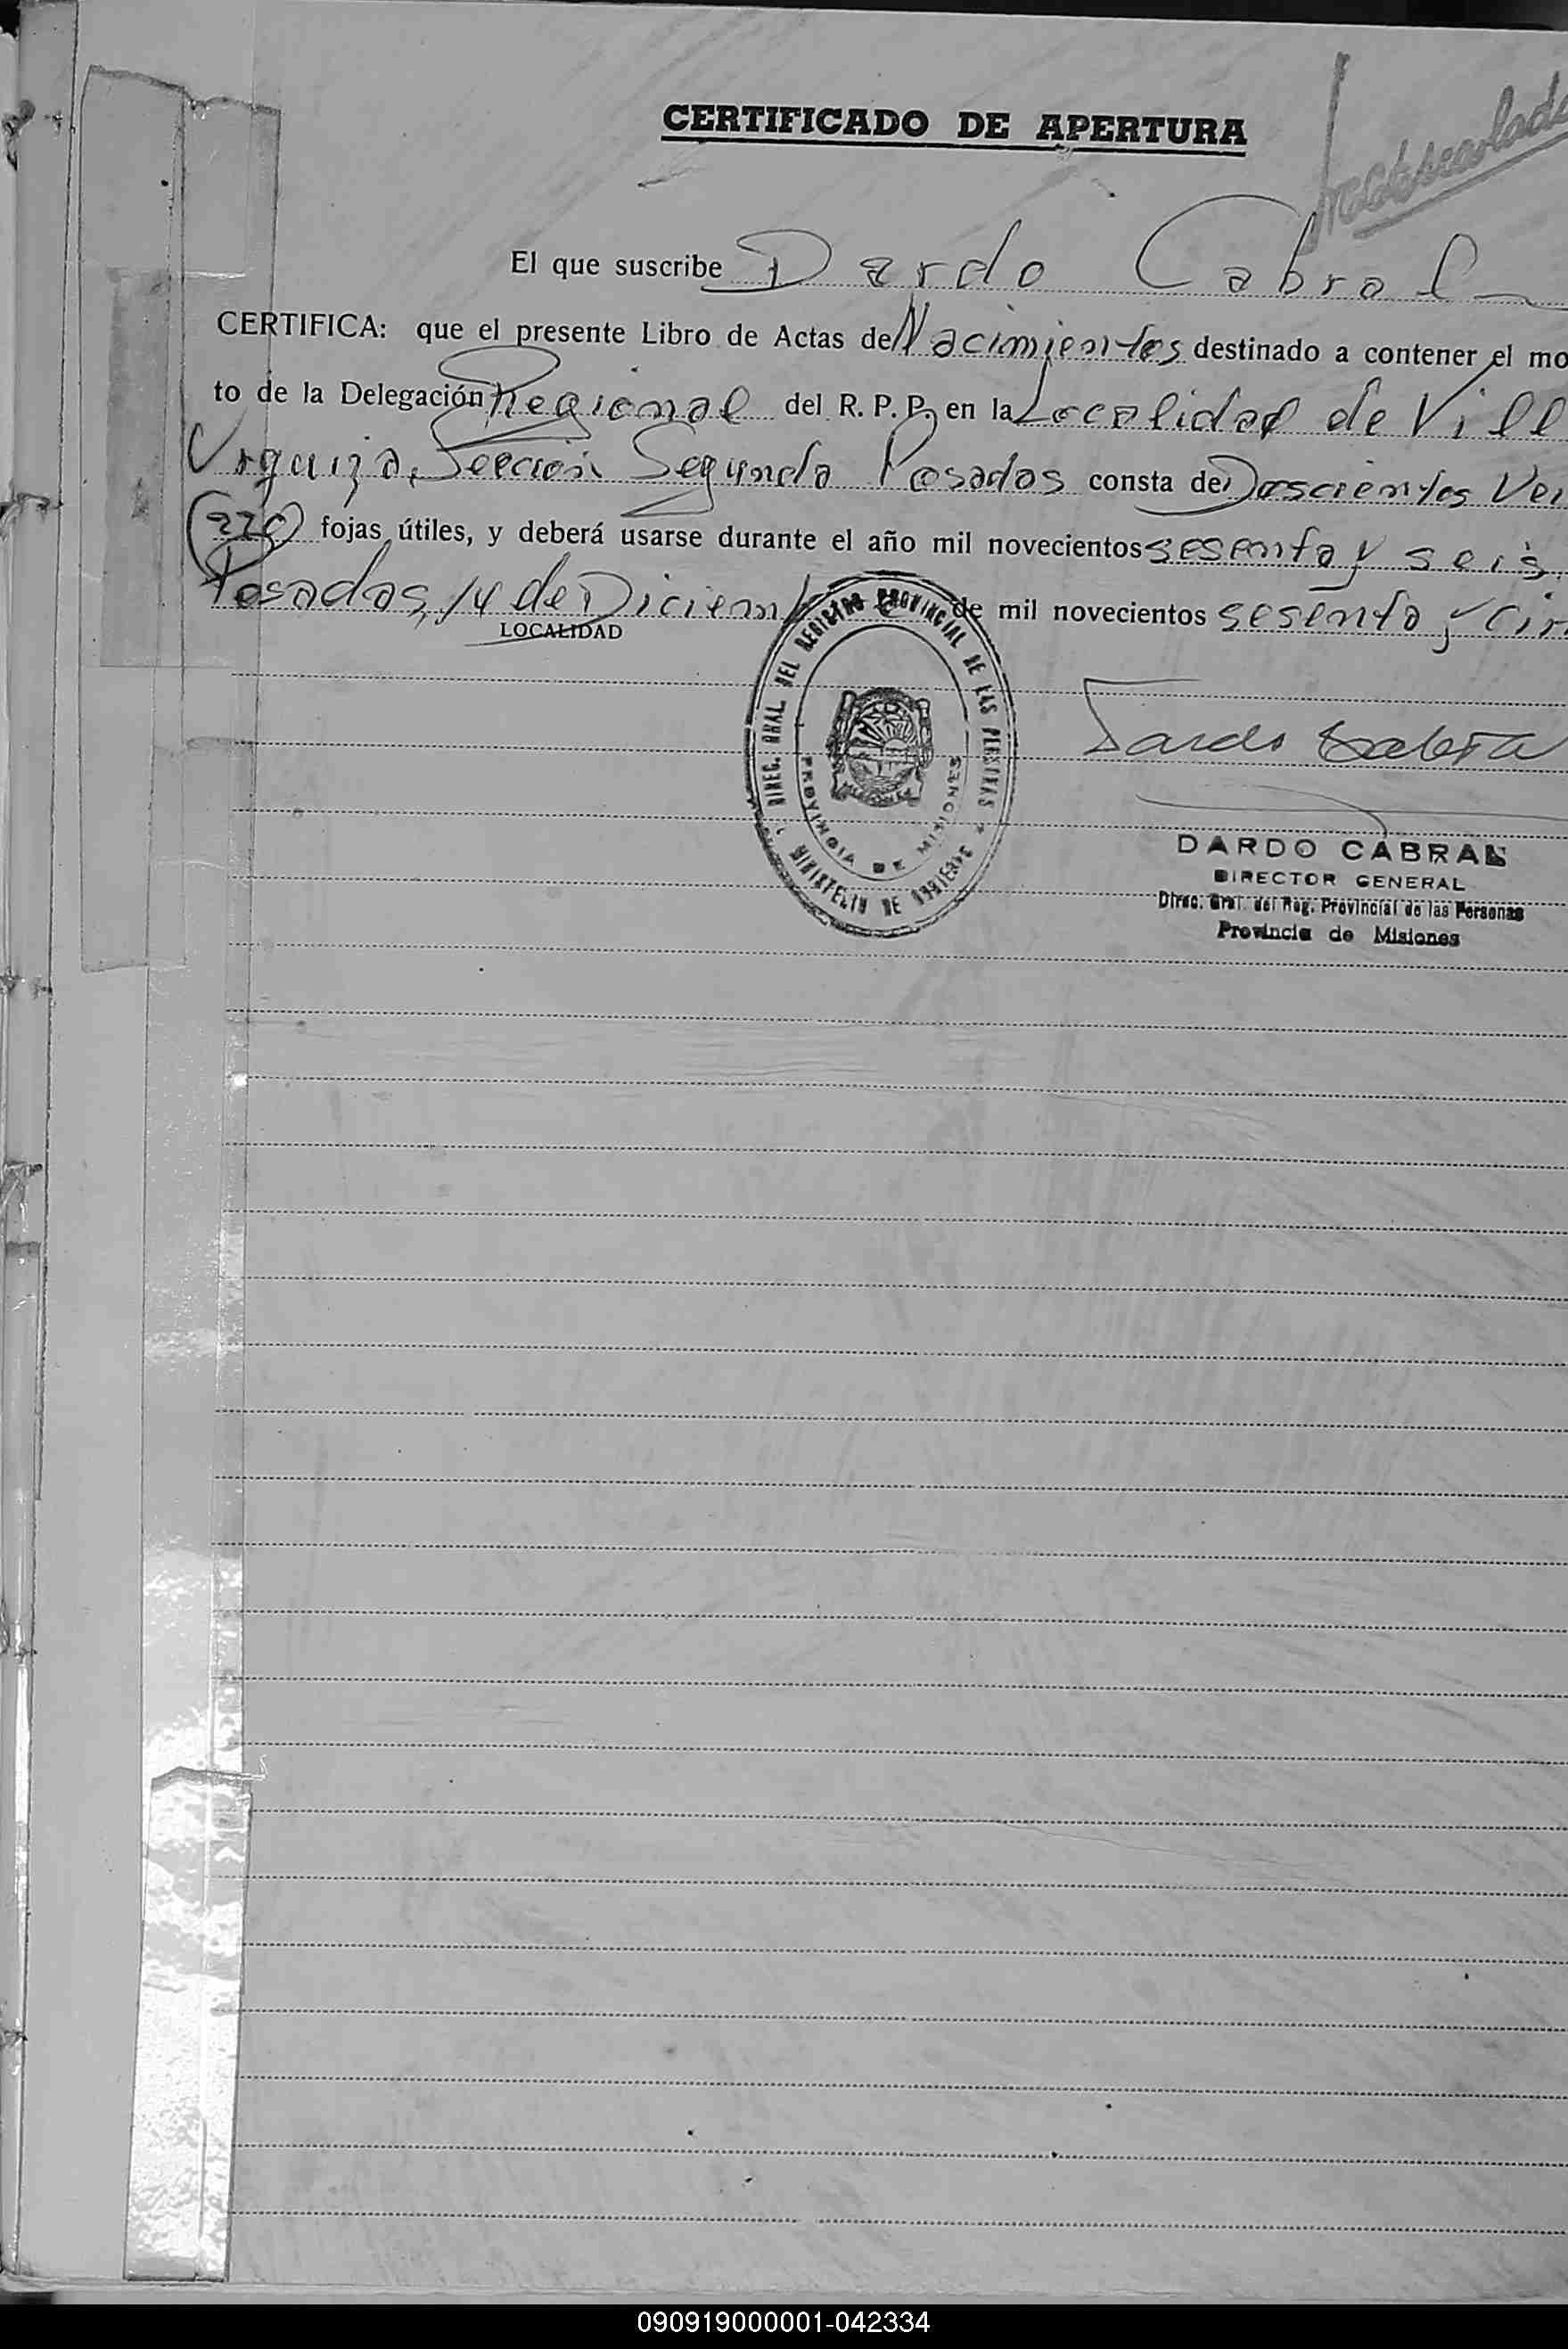 CERTIFICADO DE APERTURA
El que suscribe Dardo Cabral
CERTIFICA: que el presente Libro de Actas de Nacimientos destinado a contener el mo
to de la Delegación Regional del R. P. P. en la Localidad de Vill
Urquiza, Sección Segunda Posadas consta de Doscientos Vei
(220) fojas útiles, y deberá usarse durante el año mil novecientos sesenta y seis
Posadas, 14 de Diciemb de mil novecientos sesenta y cin
LOCALIDAD
DIREC. GRAL. DEL REGISTRO PROVINCIAL DE LAS PERSONAS
PROVINCIA DE MISIONES
MINISTERIO DE GOBIERNO
Dardo Cabral
DARDO CABRAL
DIRECTOR GENERAL
Direc. Gral. del Reg. Provincial de las Personas
Provincia de Misiones
090919000001-042334